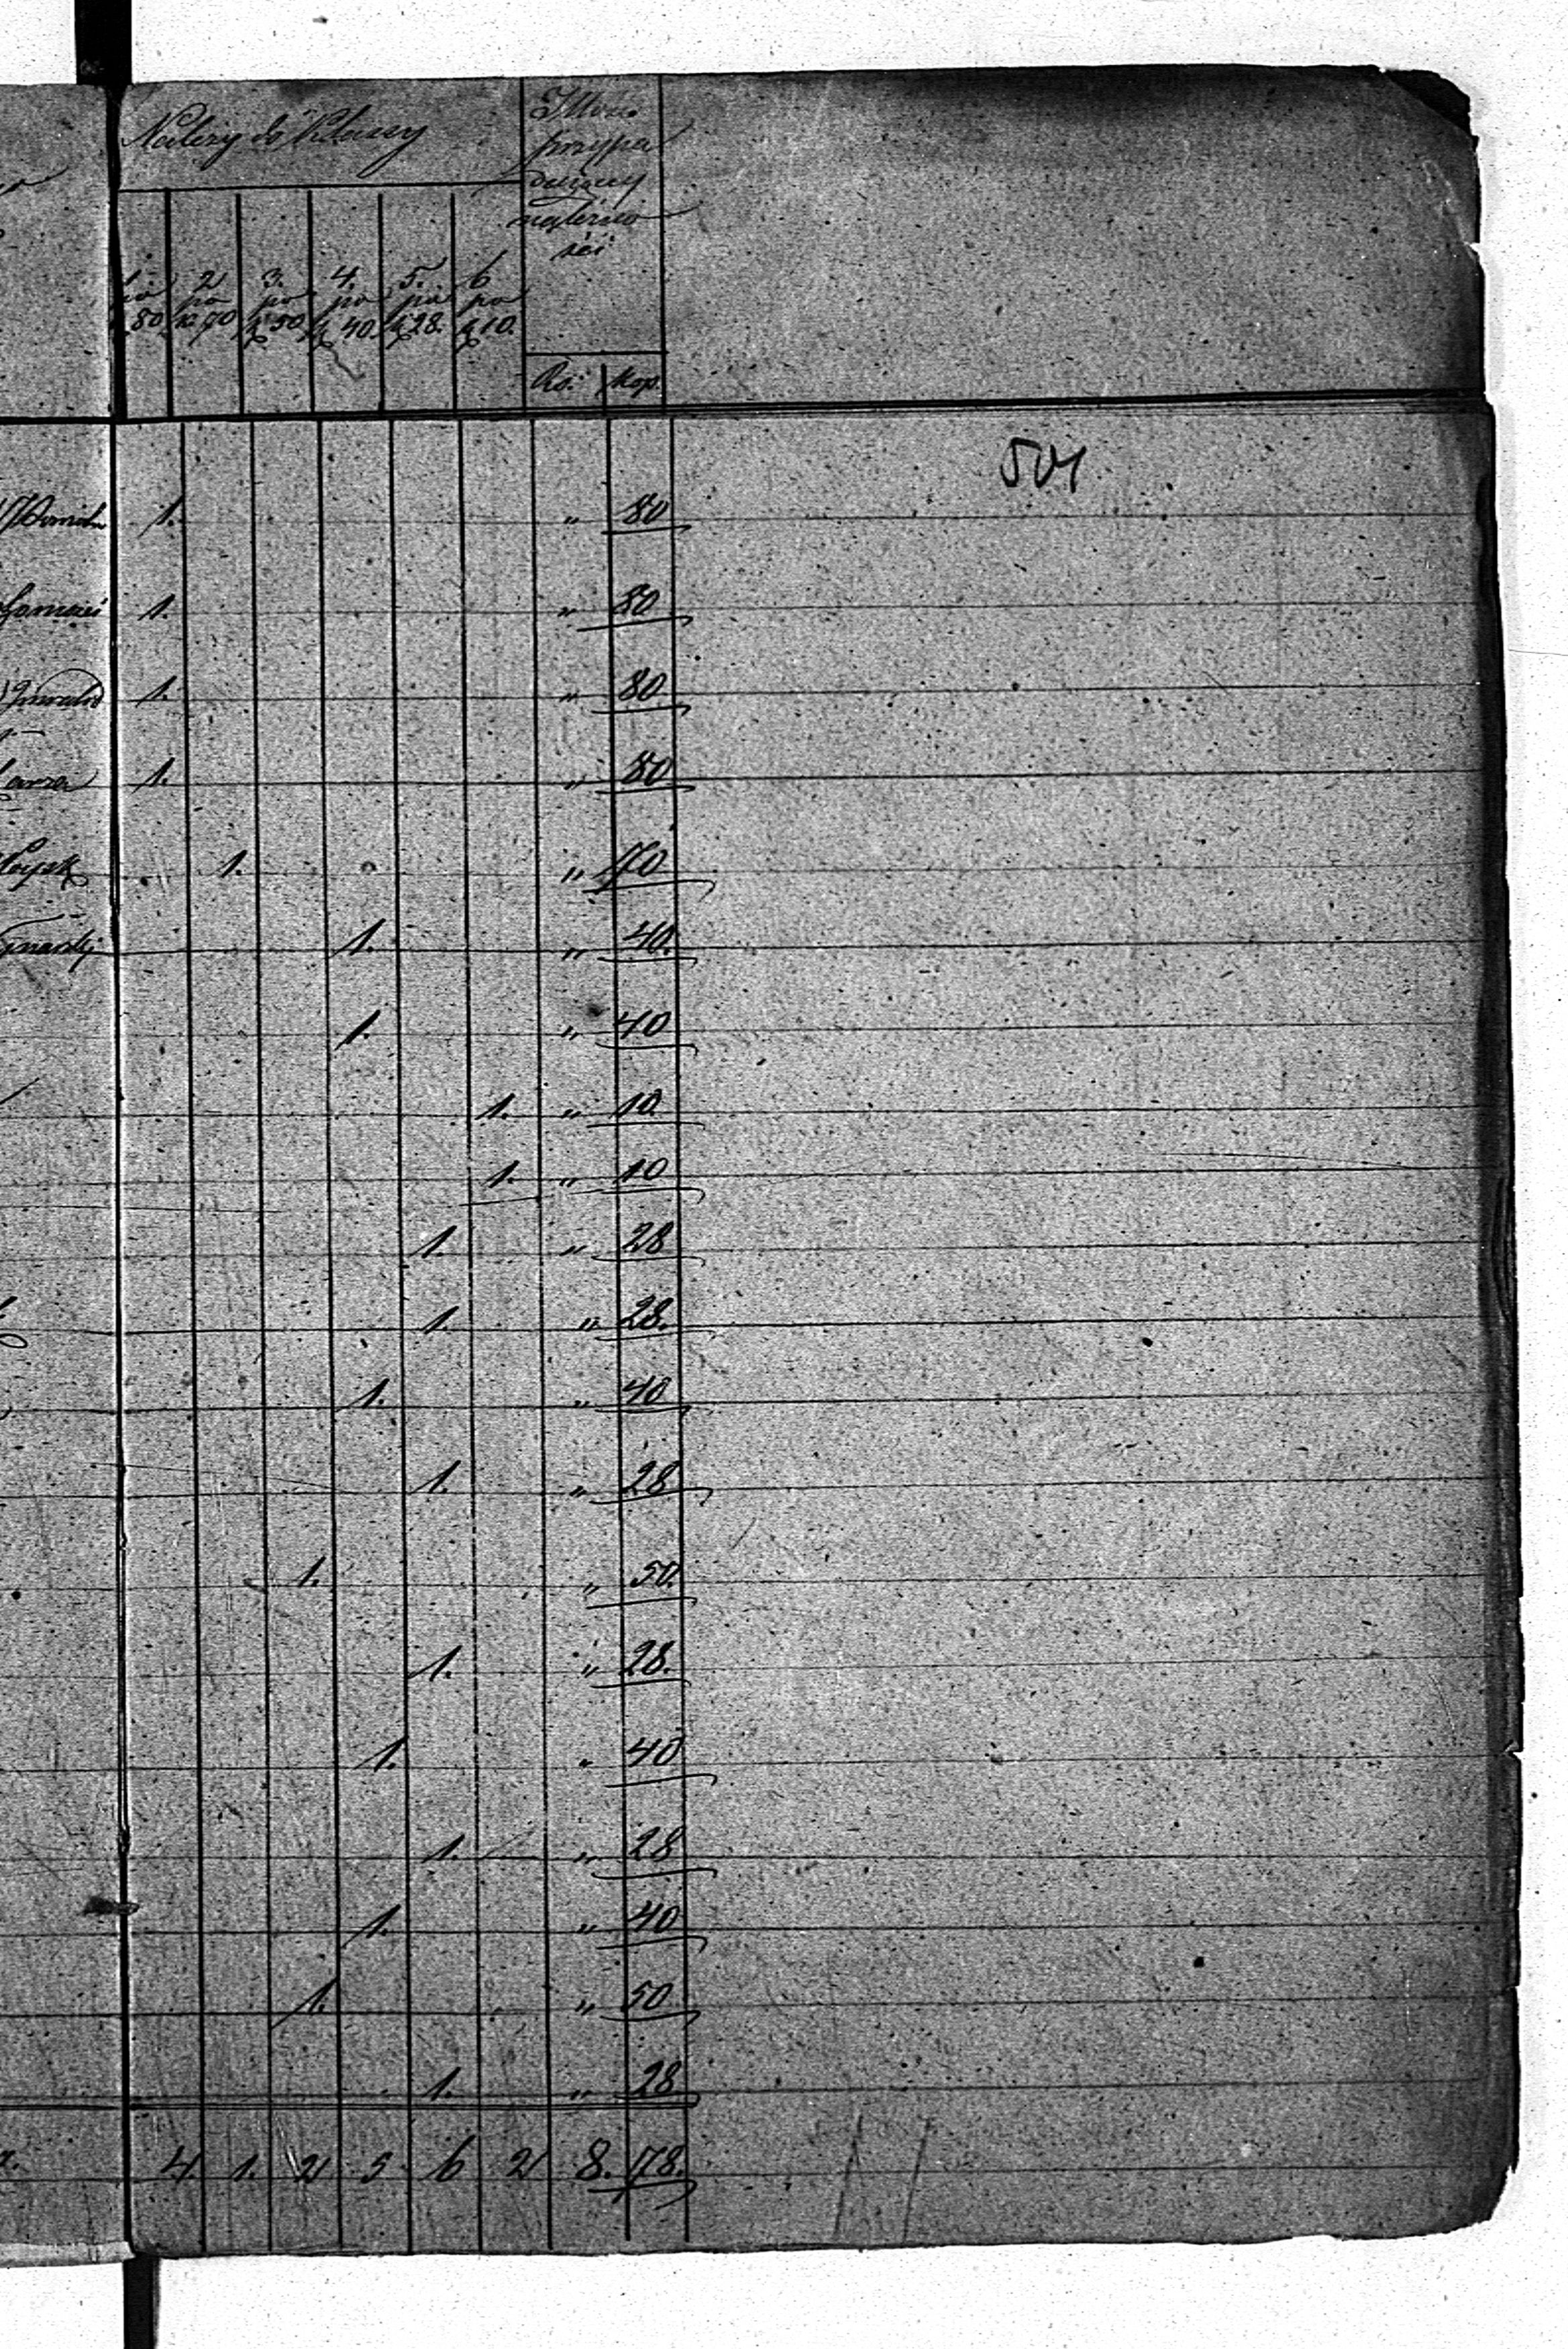 Należy do Klassy
Illość
przypa
dającej
należito
ści
1. 2 3. 4. 5. 6
po po po po po po
80 k. 70 k 50 k 40. k 28. k 10.
Rs. Kop.
501
1. " 80
1. " 80
1. " 80
1. " 80
1. " 70
1. " 40.
1. " 40
1. " 10
1. " 10
1. " 28
1. " 28.
1. " 40
1. " 28
1. " 50.
1. " 28.
1. " 40
1. " 28
1. " 40
1. " 50
1. " 28
4 1. 2 5 6 2 8. 78.